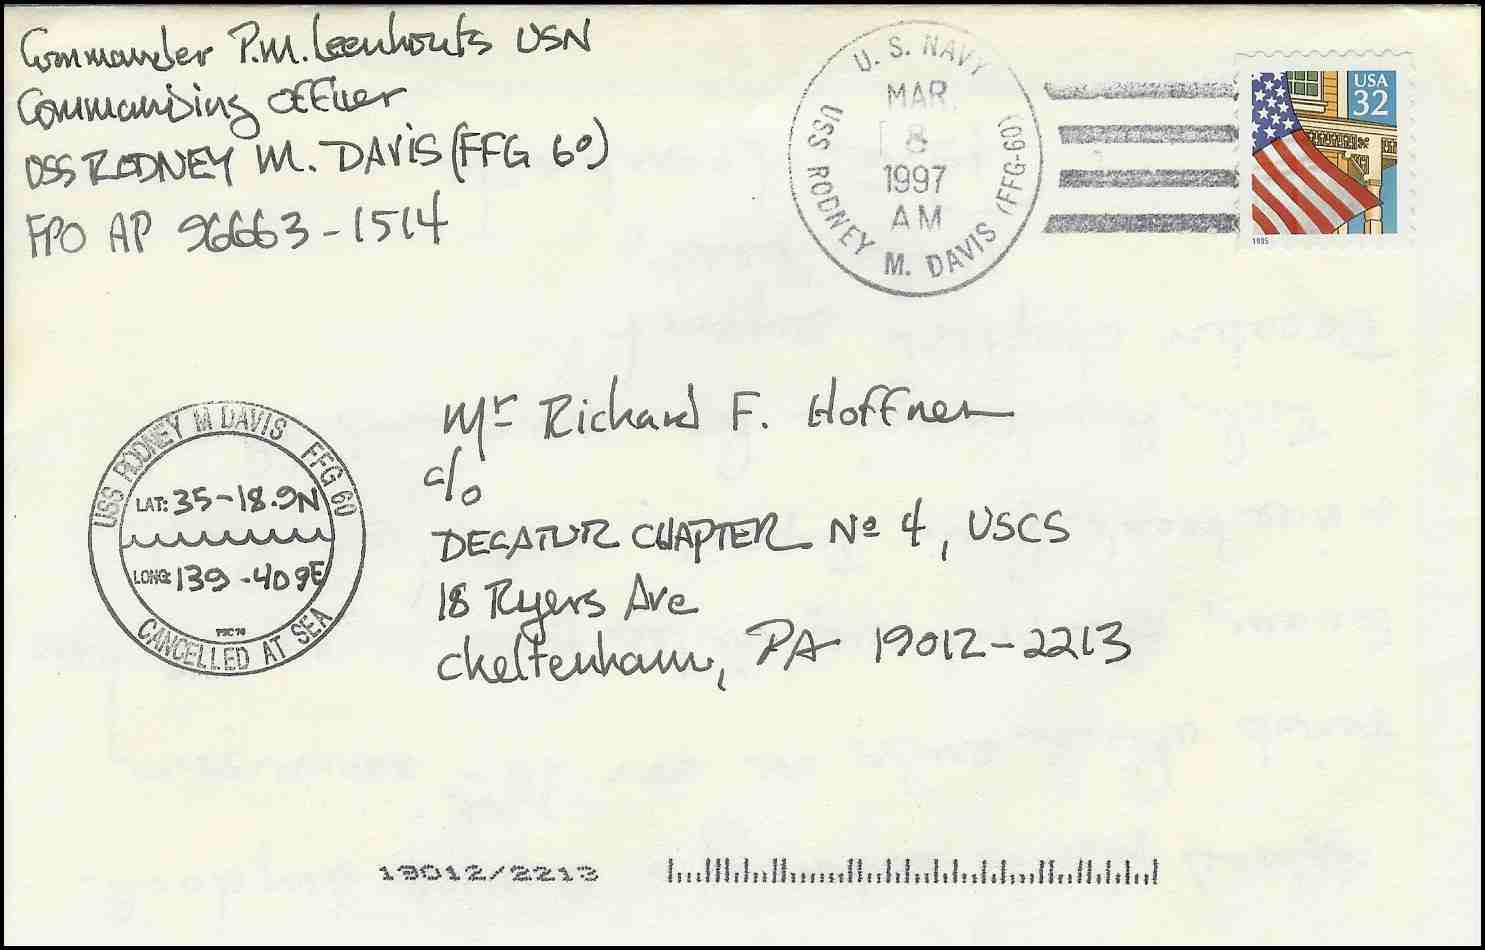 Commander P.M. Leenhouts USN
Commanding Officer
USS RODNEY M. DAVIS (FFG 60)
FPO AP 96663-1514
U. S. NAVY
MAR
8
1997
AM
USS RODNEY M. DAVIS (FFG-60)
USA
32
1995
USS RODNEY M DAVIS FFG 60
LAT: 35-18.9N
LONG: 139-40.9E
CANCELLED AT SEA
Mr Richard F. Hoffner
c/o
DECATUR CHAPTER No 4, USCS
18 Ryers Ave
Cheltenham, PA 19012-2213
19012/2213